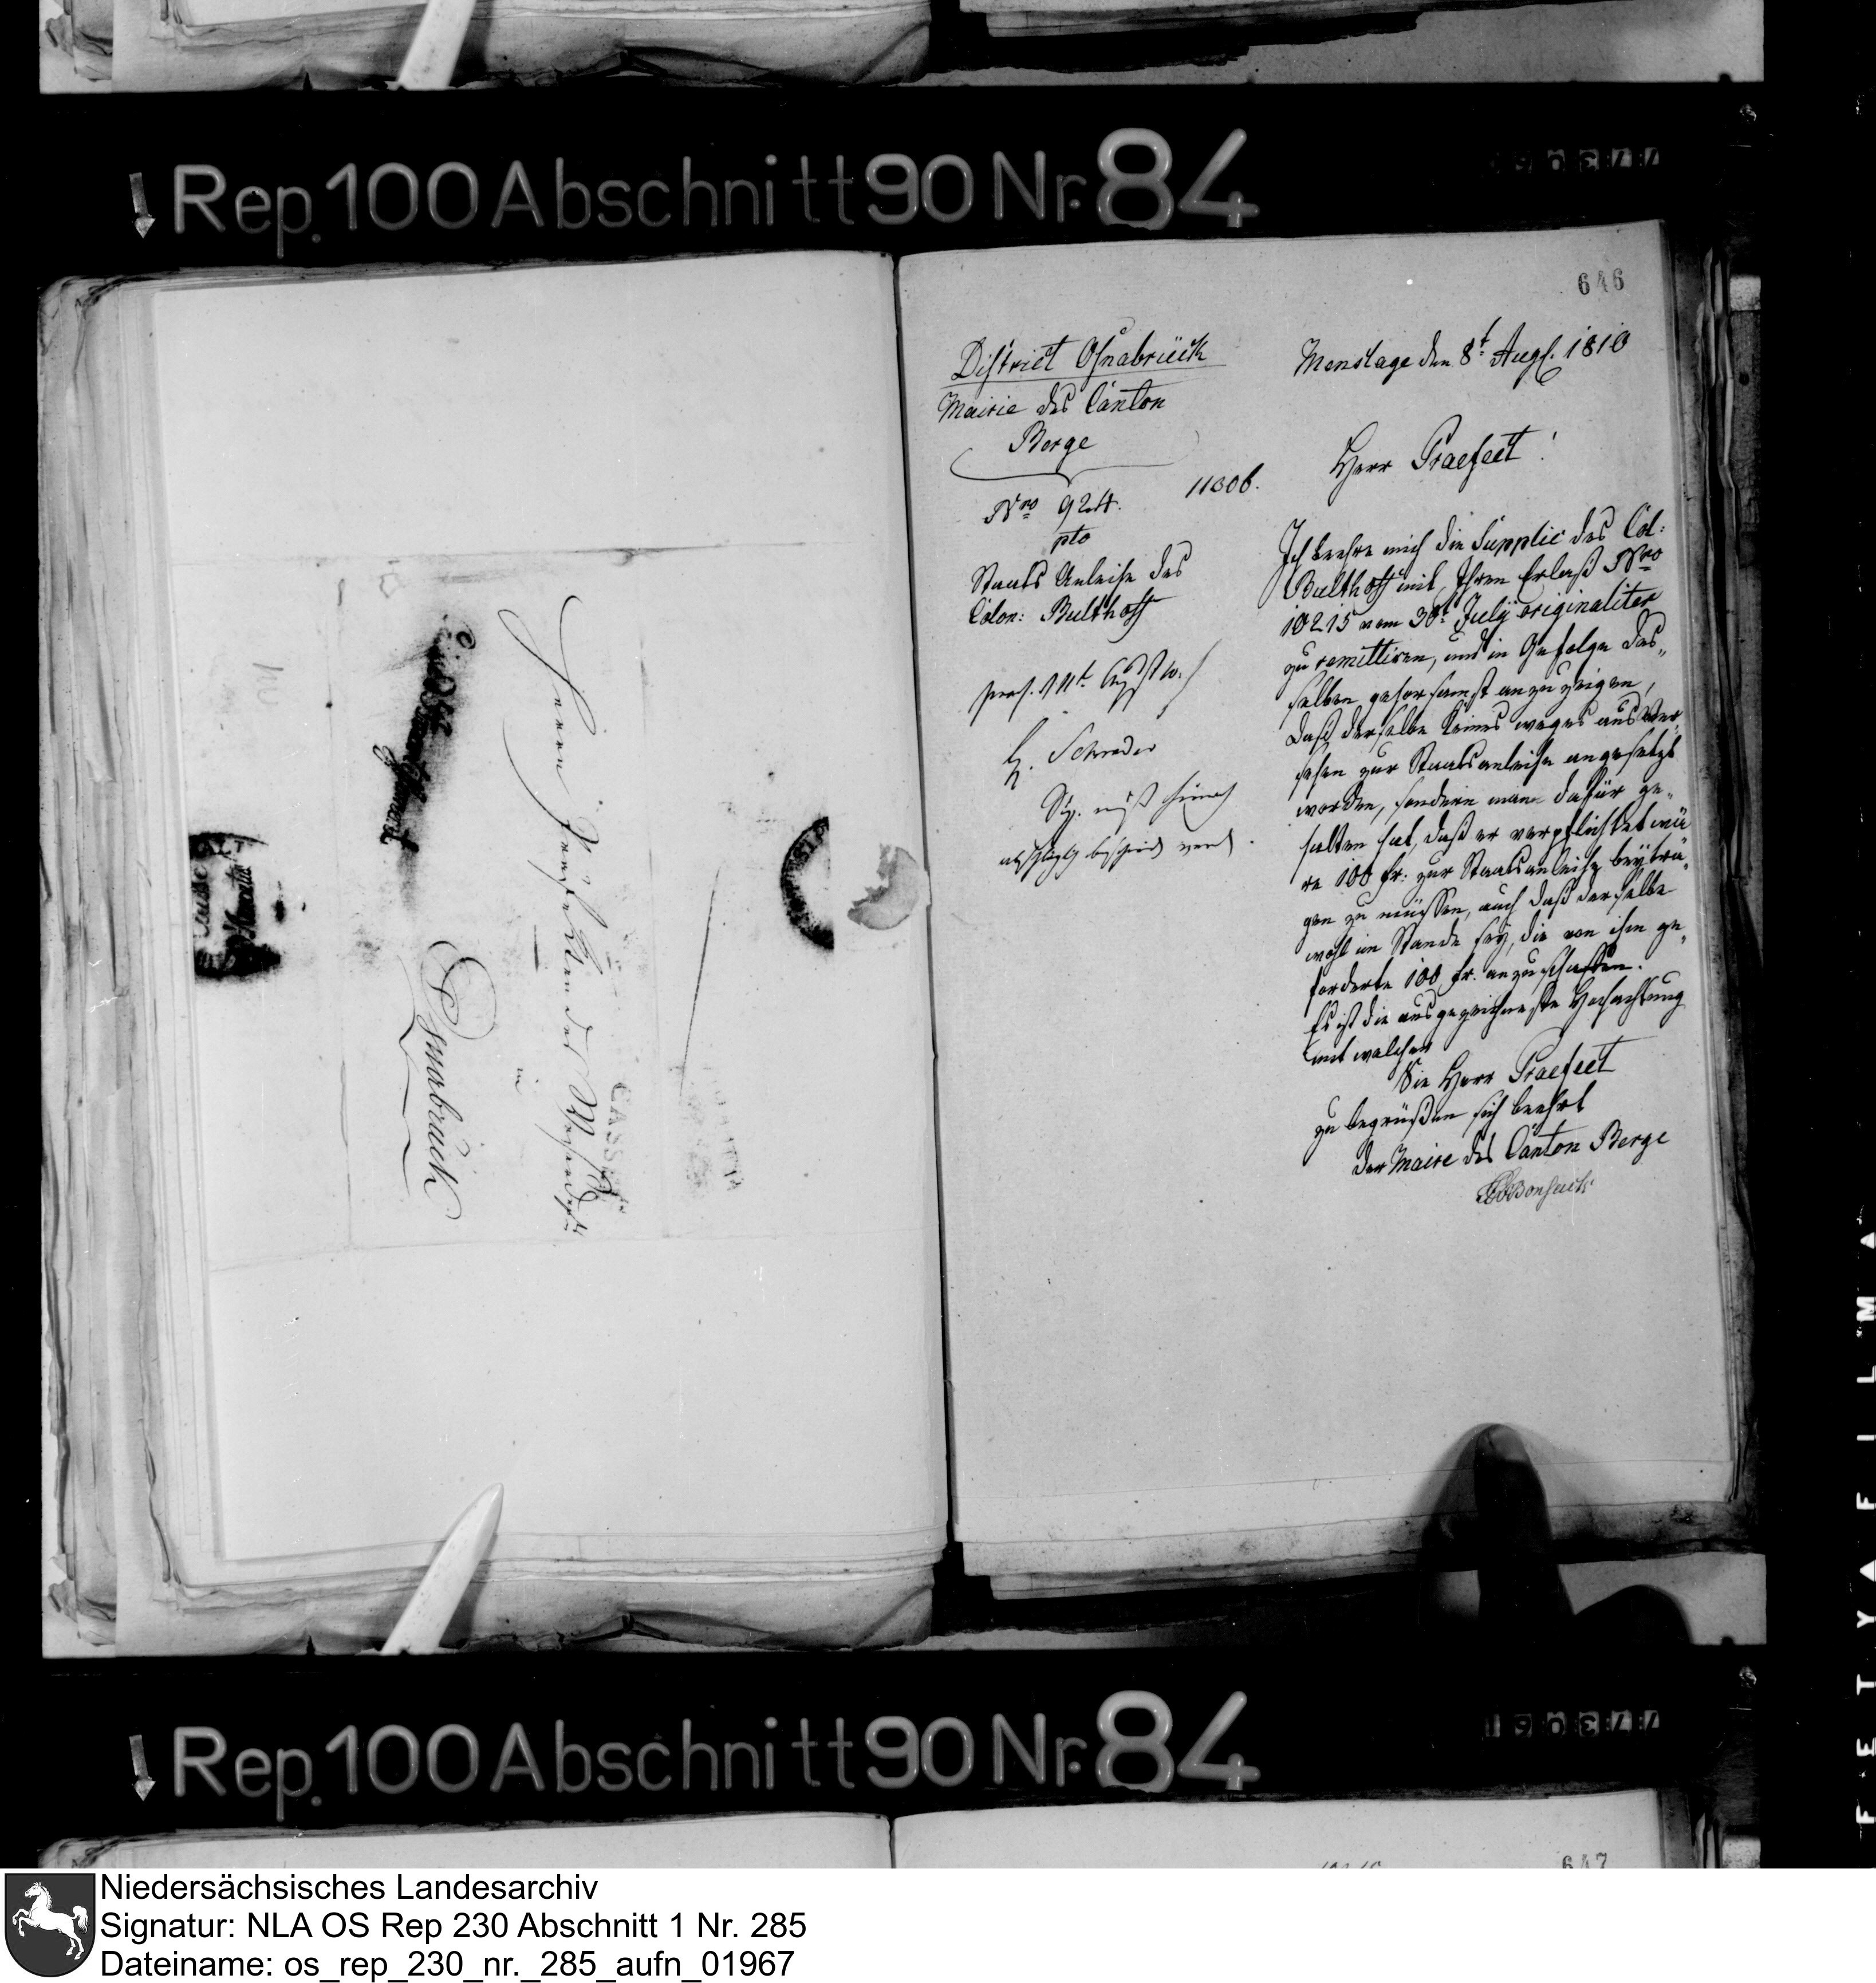 Rep. 100 Abschnitt 90 Nr. 84
646
District Osnabrück
Mairie des Canton
Berge
Nro 924.
pto
Staats Anleihe des
Colon: Bulthoff
11306.
H. Schrader
Menslage den 8t Augs. 1810
Herr Praefect!
Ich beehre mich die Supplic des Col:
Bulthoff mit Ihren Erlaß Nro
10215 vom 30t July originaliter
zu remittiren, und in Gefolge des„
selben gehorsamst anzuzeigen,
daß derselbe keines weges aus Ver„
sehen zur Staatsanleihe angesetzt
worden, sondern man dafür ge„
halten hat, daß er verpflichtet wä
re 100 fr: zur Staatsanleihe beyträ„
gen zu müssen, auch daß derselbe
wohl im Stande sey, die von ihm ge„
forderte 100 fr. anzuschaffen.
Es ist die ausgezeichneste Hochachtung
mit welcher
Sie Herr Praefect
zu begrüßen sich beehrt
der Maire des Canton Berge
Herrn Präfekten des
in
Osnabrück
CASSEL
Rep. 100 Abschnitt 90 Nr. 84
647
Niedersächsisches Landesarchiv
Signatur: NLA OS Rep 230 Abschnitt 1 Nr. 285
Dateiname: os_rep_230_nr._285_aufn_01967